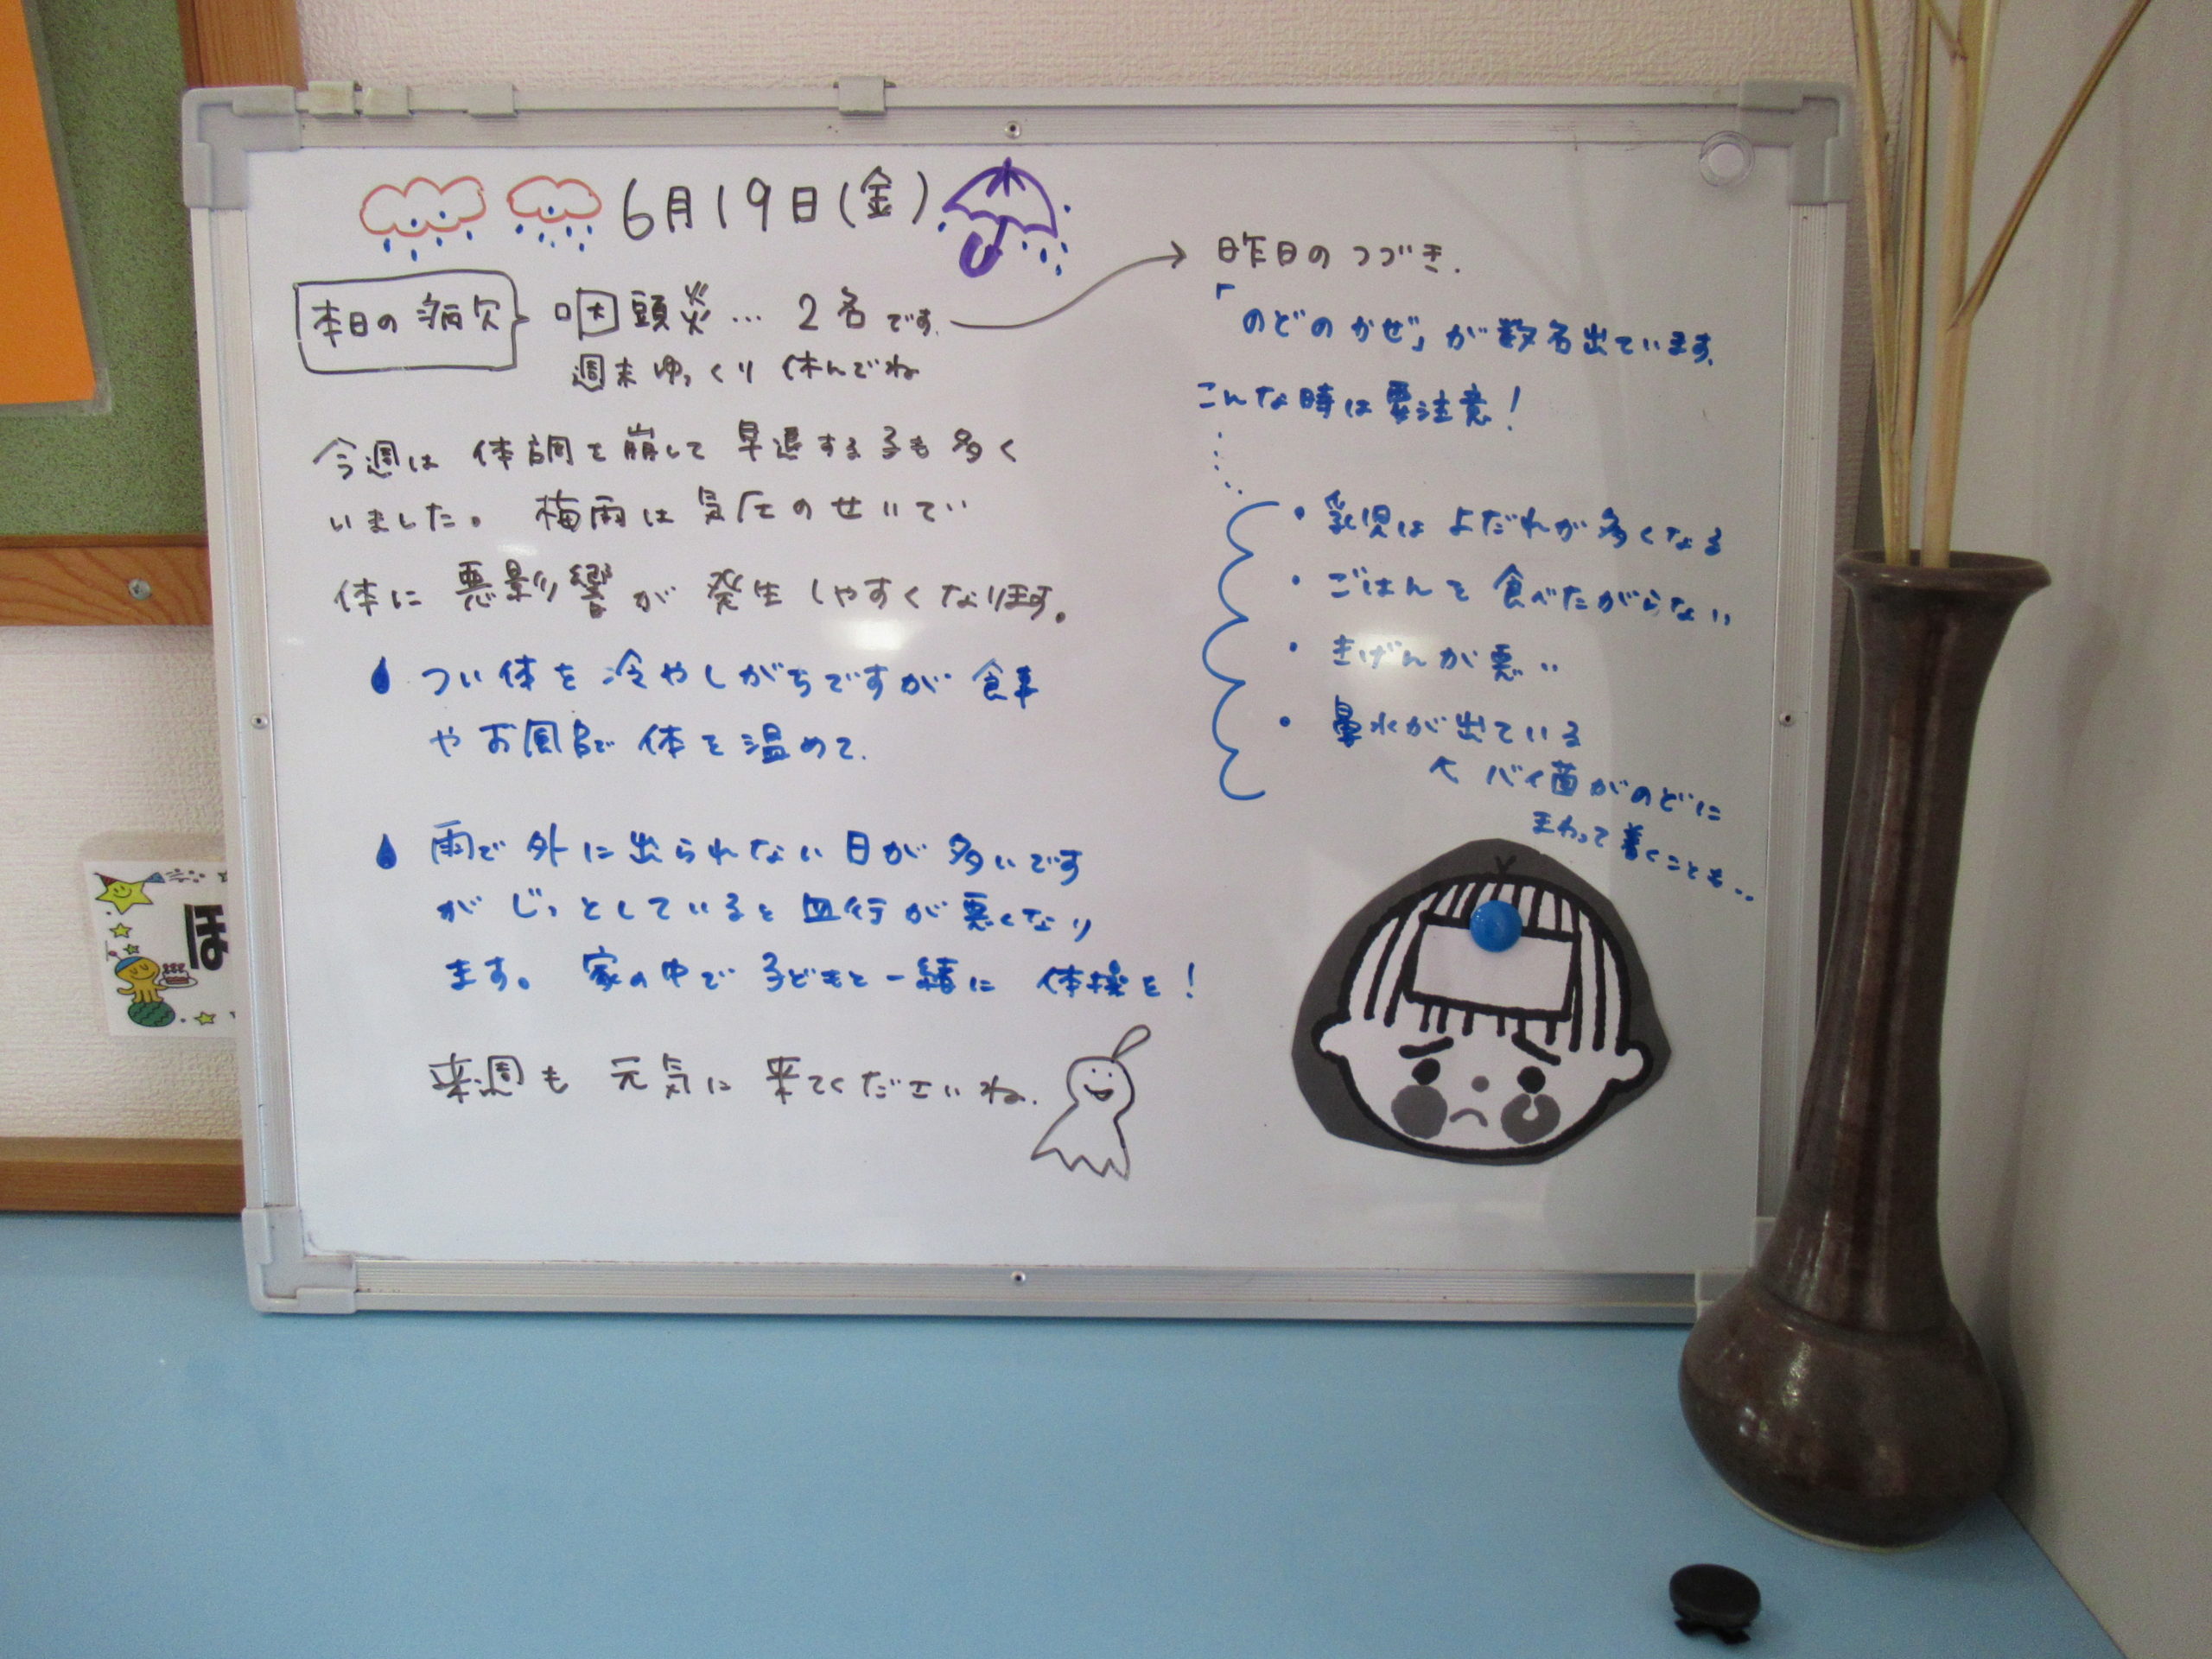 6月19日(金)
本日の病欠
咽頭炎…2名です。
週末ゆっくり休んでね
今週は体調を崩して早退する子も多く
いました。梅雨は気圧のせいてい
体に悪影響が発生しやすくなります。
つい体を冷やしがちですが食事
やお風呂で体を温めて。
雨で外に出られない日が多いです
がじっとしていると血行が悪くなり
ます。家の中で子どもと一緒に体操を!
来週も元気に来てくださいね。
昨日のつづき.
「のどのかぜ」が数名出ています。
こんな時は要注意!
・乳児はよだれが多くなる
・ごはんを食べたがらない
・きげんが悪い
・鼻水が出ている
バイ菌がのどに
まわって着くことも..
ほ